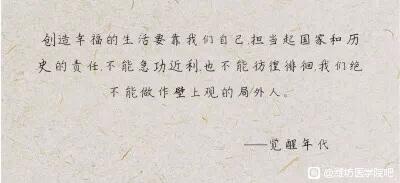 创造幸福的生活要靠我们自己,担当起国家和历
史的责任,不能急功近利,也不能彷徨徘徊,我们绝
不能做作壁上观的局外人。
——觉醒年代
@潍坊医学院吧